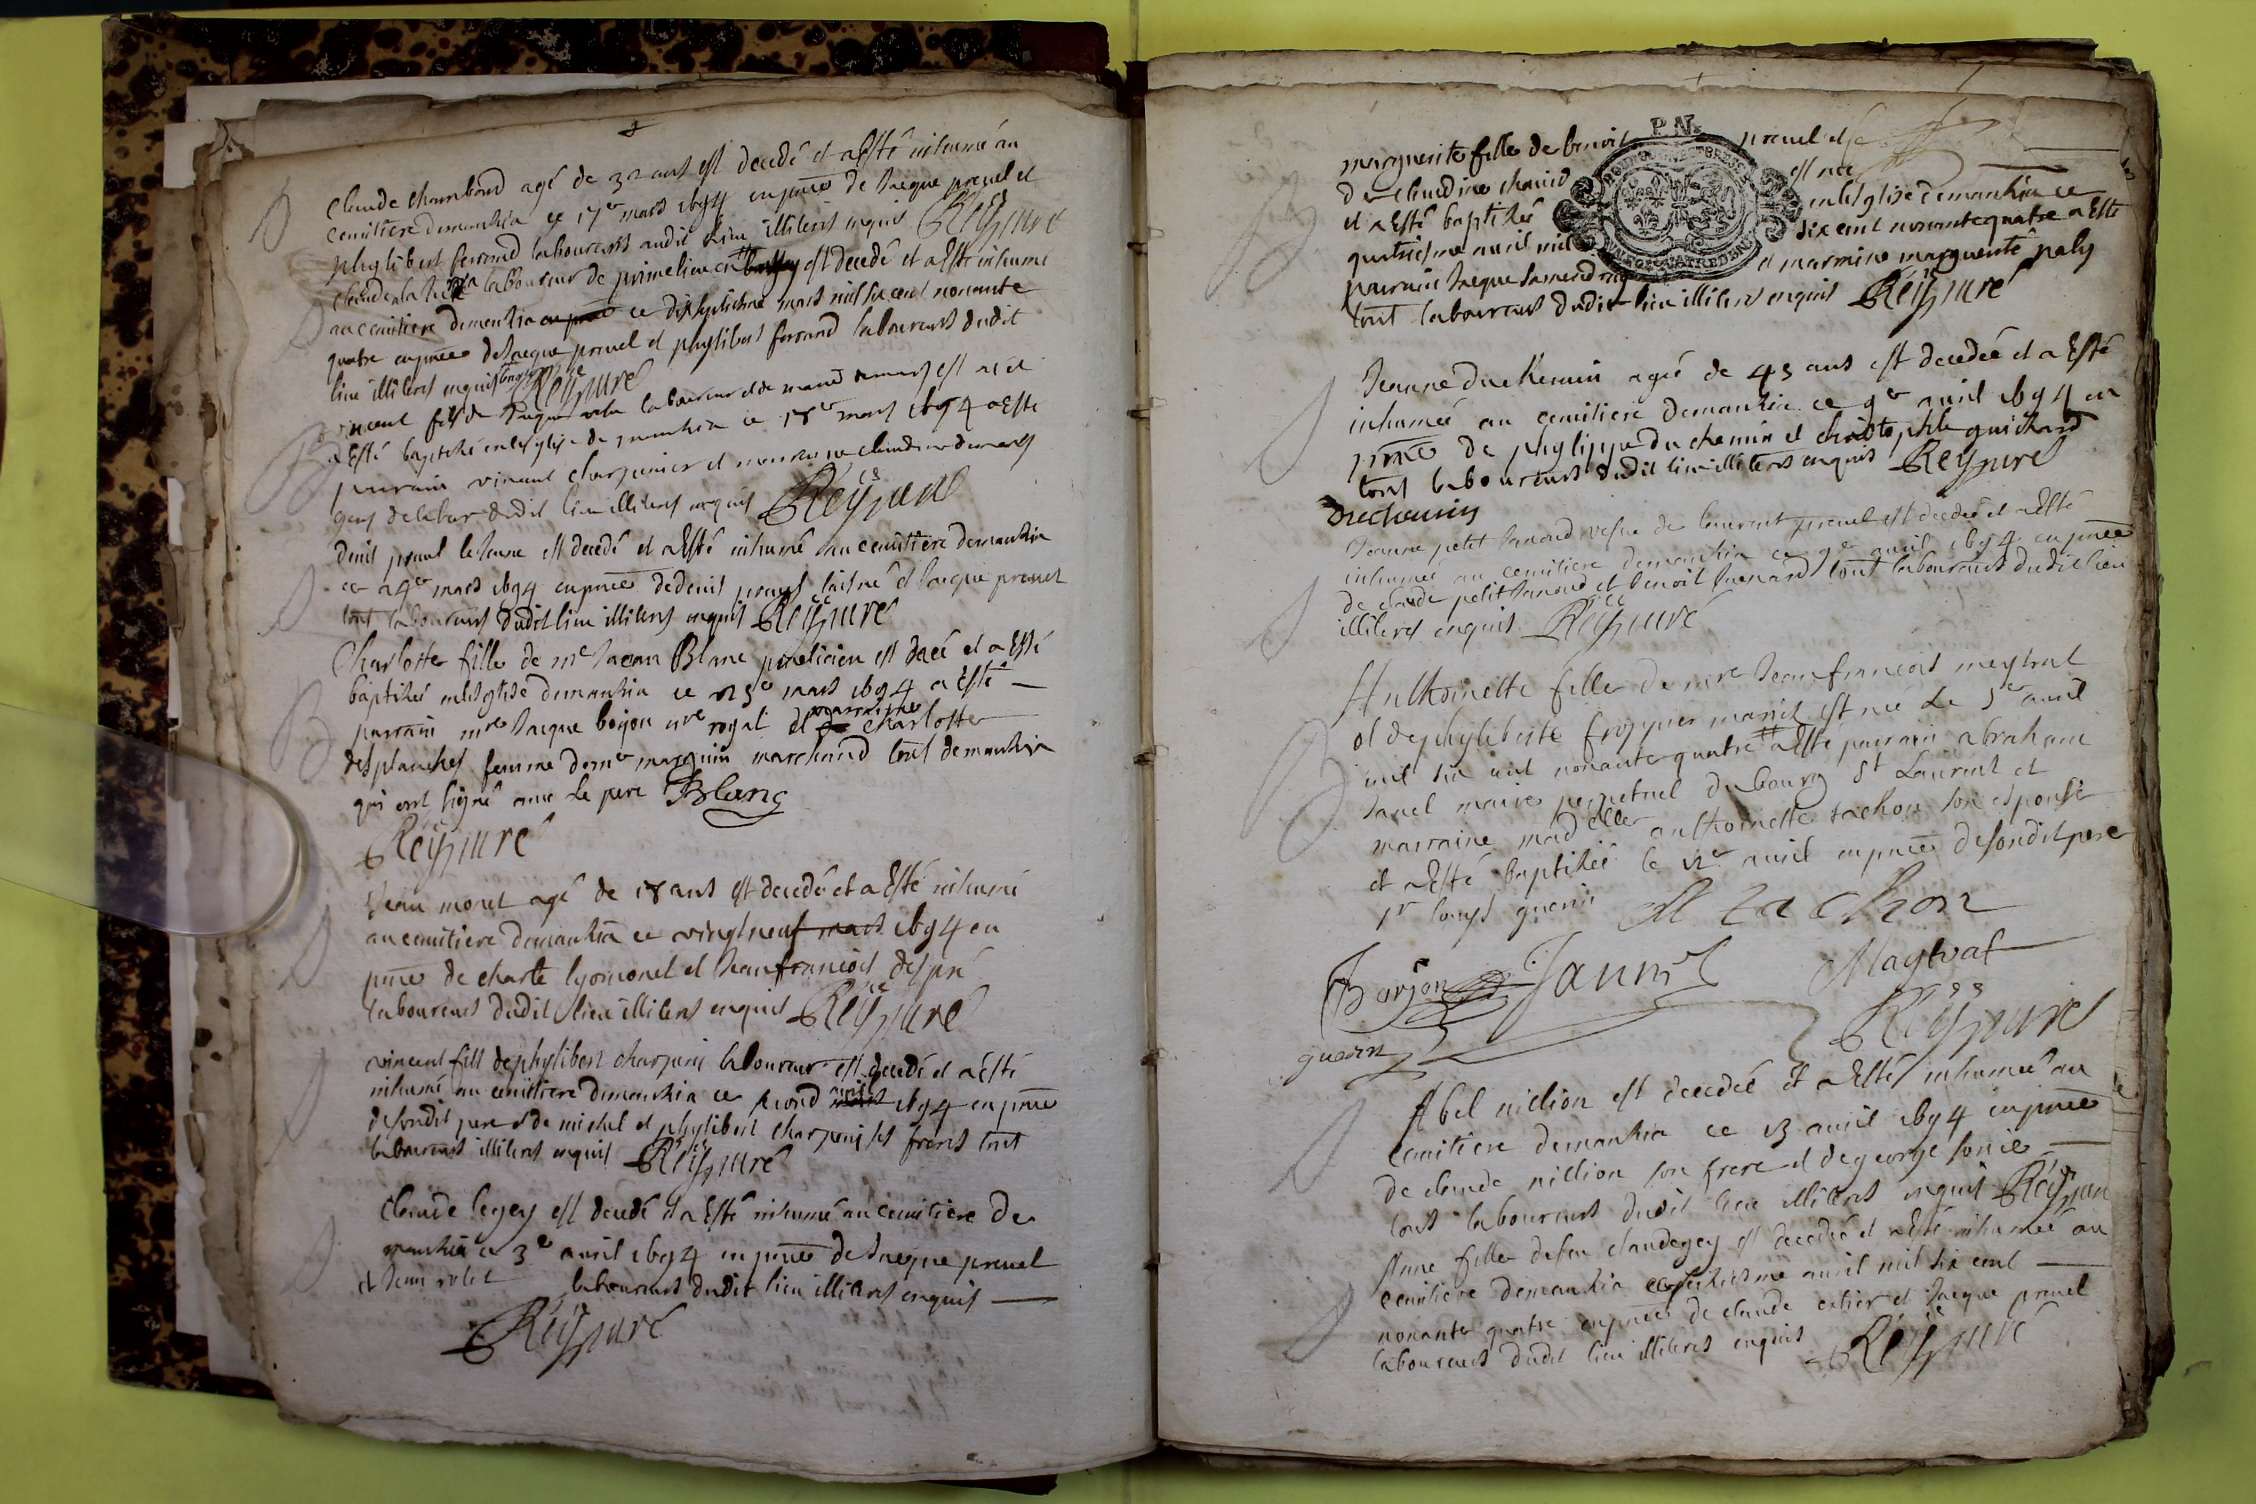 Claude chambard agé de 32 ans est decedé et a Esté inhumé au
cemitiere demanzia ce 17e mars 1694 en pnce de Jacque preuel et
phylibert ferrand laboureurs audit lieu illiteres enquis Reÿ curé
Claude la laboureur de est decedé et a Esté inhumé
au cemitiere demanzia ce dixseptiesme mars mil six cent nonante
quatre en pnce de Jacque preuel et phylibert ferrand laboureurs dudit
lieu illiteres enquis Reÿ curé
vincent fils de laboureur et de est né et
a Esté baptizé en lesglise de manzia ce 18e mars 1694 a Esté
parrain vincent charpenier et marraine claudine
gens de labur dudit lieu illiteres enquis Reÿ curé
Denis preuel le Jeune est decedé et a Esté inhumé au cemitiere demanzia
ce 24e mars 1694 en pnce de denis preuel laisné et Jacque preuel
tous laboureurs dudit lieu illiteres enquis Reÿ curé
Charlotte fille de me Blanc praticien est née et a Esté
baptizée en lesglise demanzia ce 25e mars 1694 a Esté
parrain mre Jacque bojon nre royal et marraine charlotte
desplanches femme de me marchand tous demanzia
qui ont signé avec le pere Blanc
Reÿ curé
Jean moret agé de 18 ans est decedé et a Esté inhumé
au cemitiere demanzia ce vingtneuf mars 1694 en
pnce de charle lyomonet et Jeanfrancois despré
laboureurs dudit lieu illiteres enquis Reÿ curé
vincent fils de phylibert charpeni laboureur est decedé et a Esté
inhumé au cemitiere demanzia ce second avril 1694 en pnce
de sondit pere et de michel et phylibert charpeni ses freres tous
laboureurs illiteres enquis Reÿ curé
Claude legey est decedé et a Esté inhumé au cemitiere de
manzia ce 3e avril 1694 en pnce de Jacque preuel
et laboureurs dudit lieu illiteres enquis
Reÿ curé
P.N.
marguerite fille de benoit preuel et
de claudine est née
et a Esté baptizée en lesglise demanzia ce
quatriesme avril mil six cent nonantequatre a Esté
parrain Jacque et marrine marguerite
tous laboureurs dudit lieu illiteres enquis Reÿ curé
Jeanne duchemin agée de 45 ans est decedée et a Esté
inhumée au cemitiere demanzia ce 9e avril 1694 en
pnce de phylippe du chemin et christophle guichard
tous laboureurs dudit lieu illiteres enquis Reÿ curé
duchemin
Jeanne petit Janaud vefve de laurent preuel est decedée et a Esté
inhumée au cemitiere demanzia ce 9e avril 1694 en pnce
de claude petit Janaud et benoit tous laboureurs dudit lieu
illiteres enquis Reÿ curé
Anthoinette fille de mre Jeanfrancois meytral
et de phyliberte froppier mariés est née le 5e avril
mil six cent nonante quatre a Esté parrain abraham
Janel maire perpetuel du bourg St Laurent et
marraine madelle anthoinette tachon son espouse
et a Esté baptizée le 12e avril en pnce de sondit pere
sr louys guerin A tachon
Borjon Jannel Maytral
guerin Reÿ curé
Abel nillion est decedée et a Esté inhumée au
cemitiere demanzia ce 13 avril 1694 en pnce
de claude nillion son frere et de george
tous laboureurs dudit lieu illiteres enquis Reÿ curé
Anne fille de feu claude gey est decedée et a Esté inhumée au
cemitiere demanzia avril mil six cent
nonante quatre en pnce de claude et Jacque preuel
laboureurs dudit lieu illiteres enquis Reÿ curé